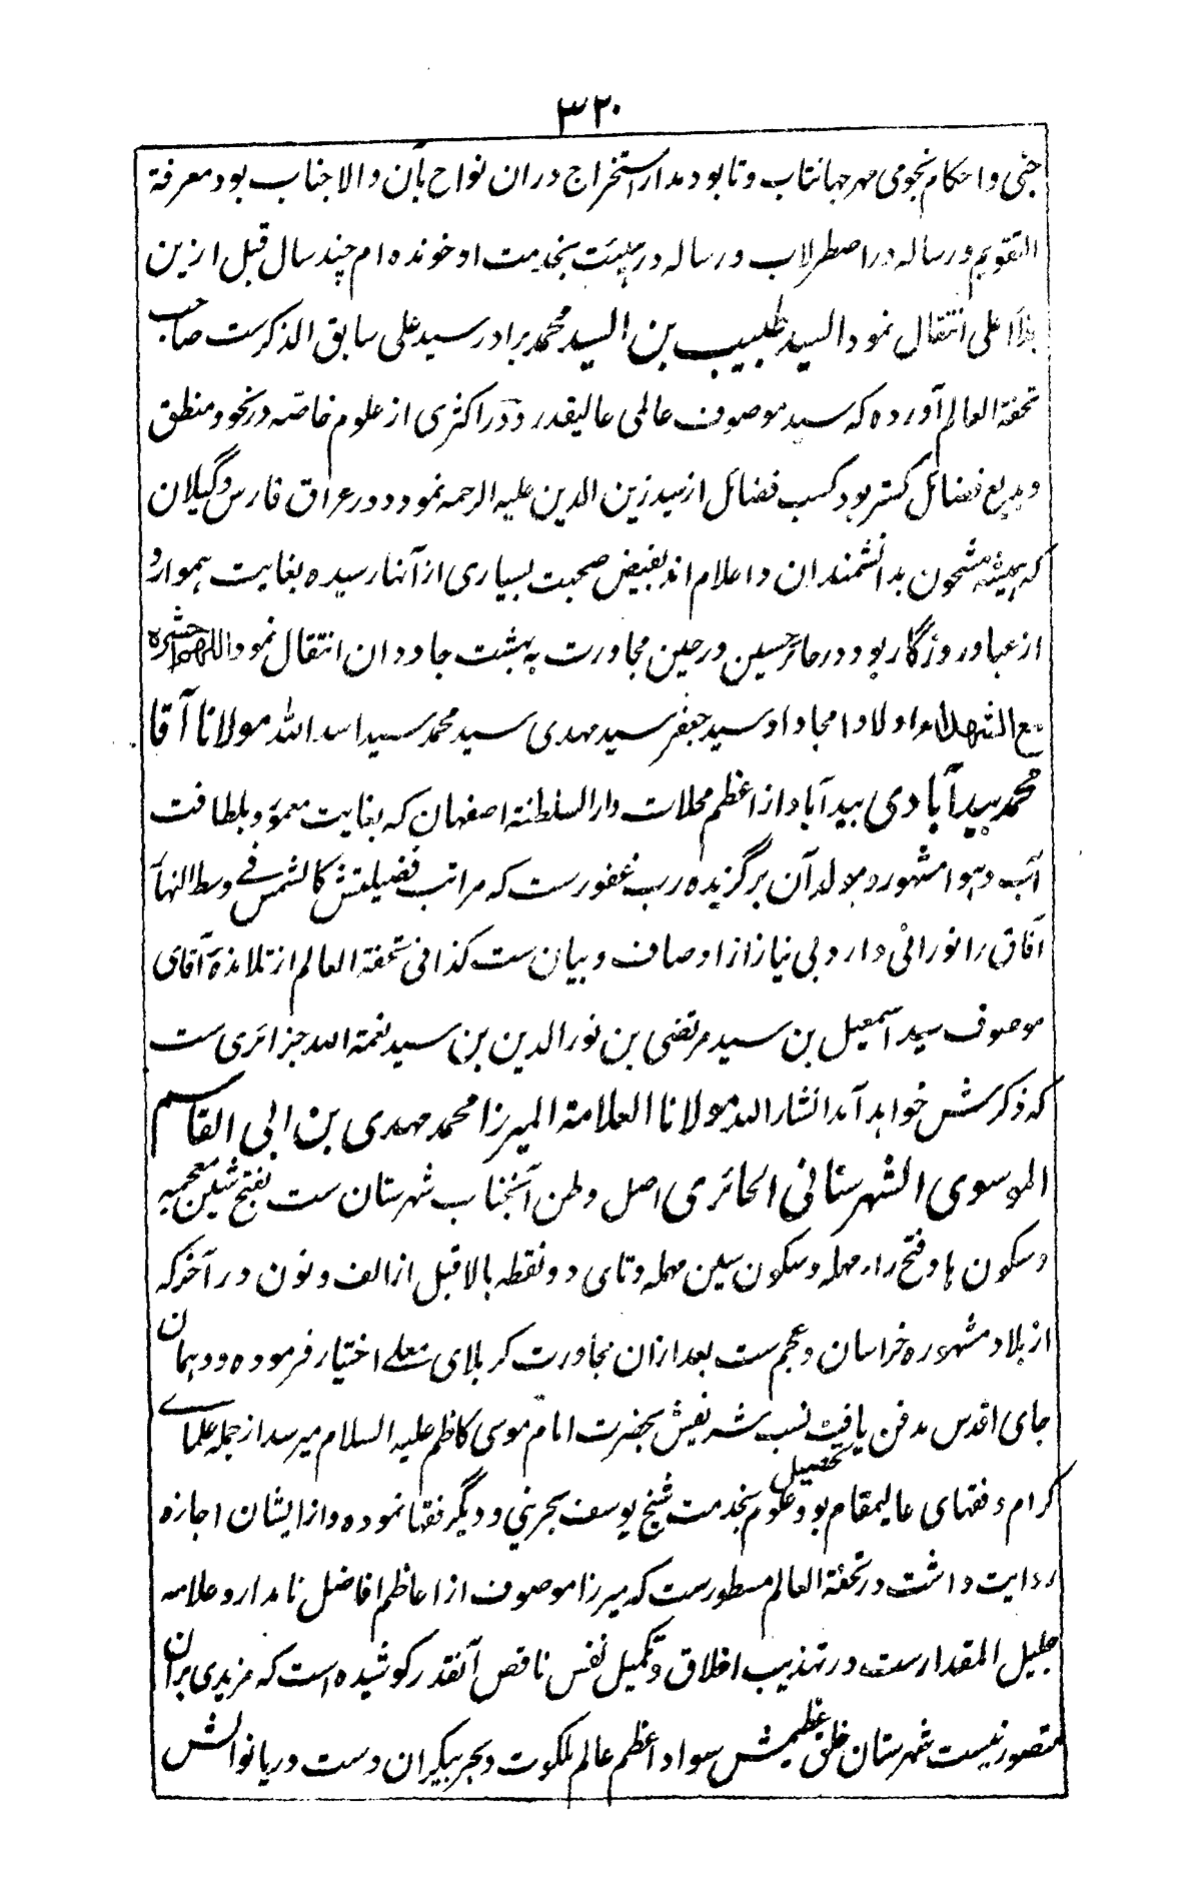 ۳۲۰
جئی و احکام نجومی مهر جهانتاب و تا بود مدار استخراج دران نواح بآن والا جناب بود معرفة
التقویم و رساله در اصطرلاب و رساله در هیئت بخدمت او خونده ام چند سال قبل ازین
بملأ اعلی انتقال نمود السید طبیب بن السید محمد برادر سید علی سابق الذکرست صاحب
تحفة العالم آورده که سید موصوف عالمی عالیقدر و در اکثری از علوم خاصّه در نحو و منطق
و بدیع فضائل گستر بود کسب فضائل از سید زین الدین علیه الرحمه نمود و در عراق فارس و گیلان
که همیشه مشحون بدانشمندان و اعلام اند بفیض صحبت بسیاری از آنها رسیده بغایت هموار و
از عباد روزگار بود در حائر حسین در حین مجاورت به بهشت جاودان انتقال نمود اللهم احشره
مع الشهداء و اولاد امجاد او سید جعفر سید مهدی سید محمد سید اسد الله مولانا آقا
محمد بیدآبادی بیدآباد از اعظم محلات دار السلطنة اصفهان که بغایت معمور و بلطافت
آب و هوا مشهور و مولد آن برگزیده رب غفورست که مراتب فضیلتش کالشمس فے وسط النهار
آفاق را نورانی دارد بی نیاز از اوصاف و بیان ست کذا فی تحفة العالم از تلامذهٔ آقای
موصوف سید اسمعیل بن سید مرتضی بن نور الدین بن سید نعمة الله جزائری ست
که ذکرش خواهد آمد انشاء الله مولانا العلامة المیرزا محمد مهدی بن ابی القاسم
الموسوی الشهرستانی الحائری اصل وطن آنجناب شهرستان ست بفتح شین معجمه
و سکون ها و فتح راء مهمله و سکون سین مهمله و تای دو نقطه بالا قبل از الف و نون در آخر که
از بلاد مشهوره خراسان و عجم ست بعد ازان مجاورت کربلای معلے اختیار فرموده و در همان
جای اقدس مدفن یافت نسب شریفش بحضرت امام موسی کاظم علیه السلام میرسد از جمله علمائے
کرام و فقهای عالیمقام بود تحصیل علوم بخدمت شیخ یوسف بحرینی و دیگر فقها نموده و از ایشان اجازه
روایت داشت در تحفة العالم مسطورست که میرزا موصوف از اعاظم افاضل نامدار و علامه
جلیل المقدارست در تهذیب اخلاق و تکمیل نفس ناقص آنقدر کوشیده است که مزیدی بران
متصور نیست شهرستان خلق عظیمش سواد اعظم عالم ملکوت و بحر بیکران دست دریا نوالش